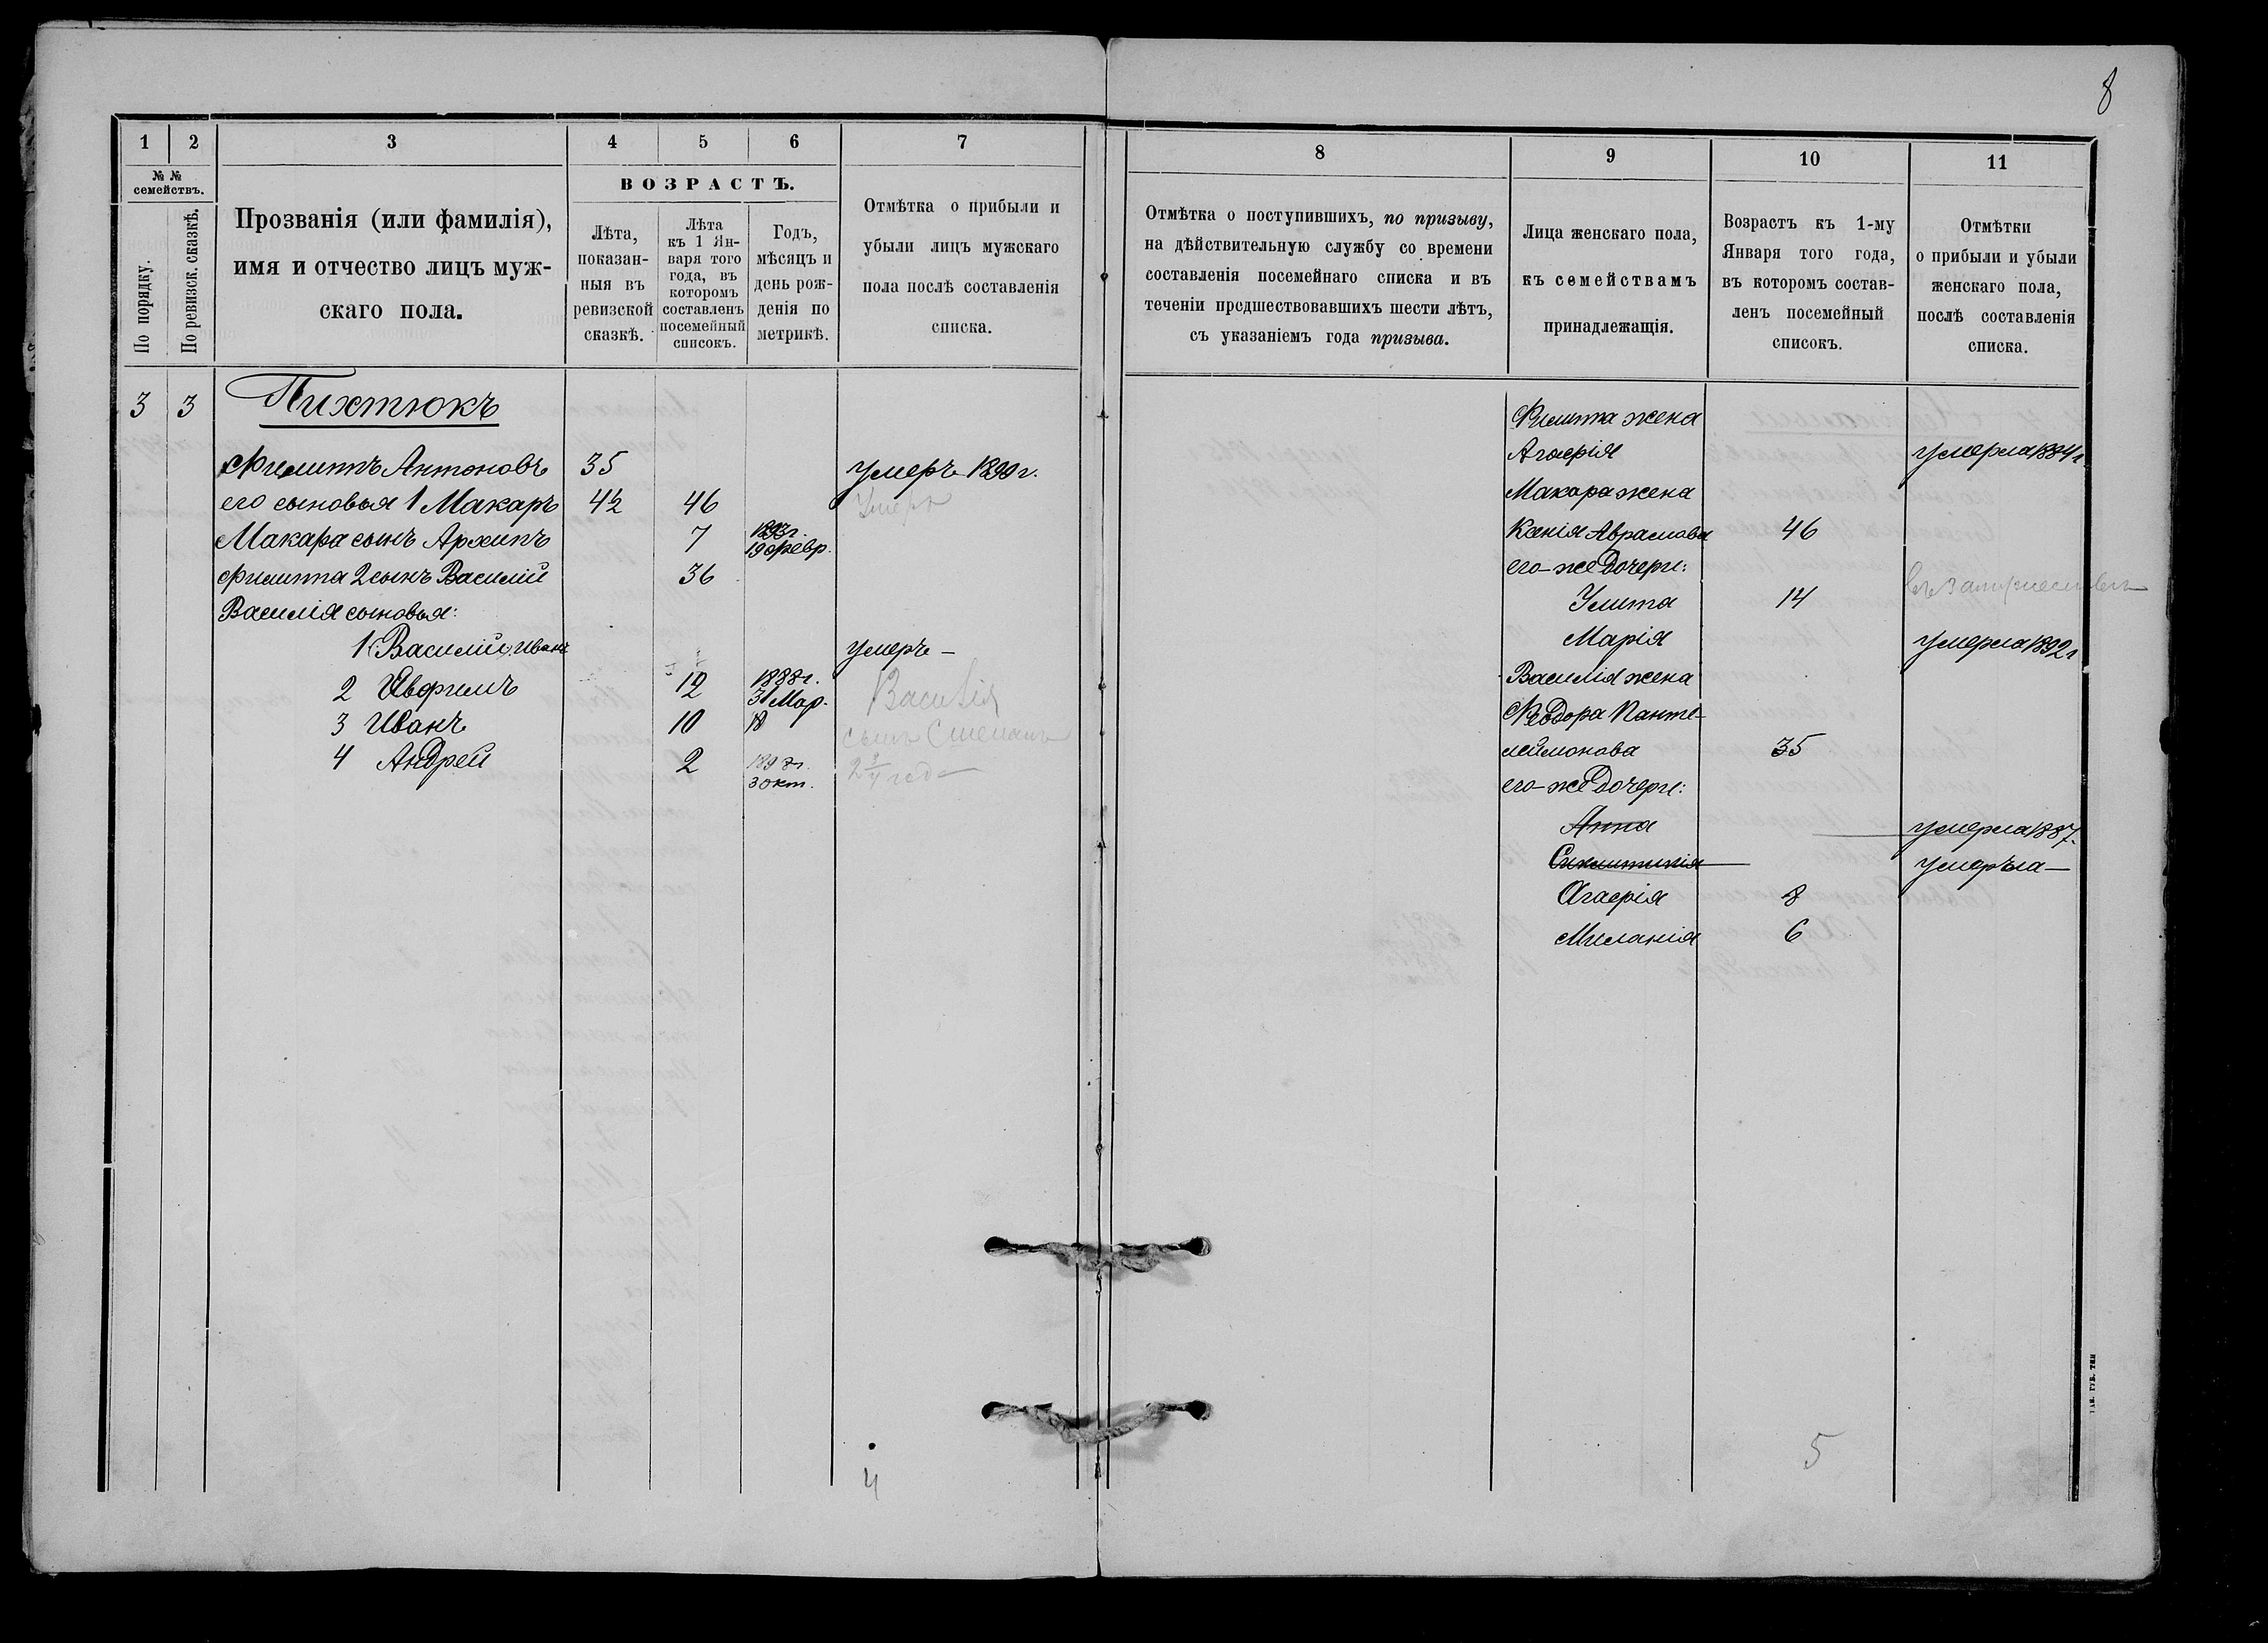 8
1
2
3
4
5
6
7
№ №
семействъ.
По порядку.
По ревизск. сказкѣ.
Прозванія (или фамилія),
имя и отчество лицъ муж-
скаго пола.
ВОЗРАСТЪ.
Лѣта,
показан-
ныя въ
ревизской
сказкѣ.
Лѣта
къ 1 Ян-
варя того
года, въ
которомъ
составленъ
посемейный
списокъ.
Годъ,
мѣсяцъ и
день рож-
денія по
метрикѣ.
Отмѣтка о прибыли и
убыли лицъ мужскаго
пола послѣ составленія
списка.
3 3 Пихтюкъ
Филиппъ Антоновъ 35 умеръ 1890 г.
его сыновья 1 Макаръ 42 46 Умеръ
Макара сынъ Архипъ 7 1893г.
19 февр.
Филиппа 2 сынъ Василій 36
Василія сыновья:
1 (Василій) Иванъ умеръ —
2 Евфимъ 12 1888г.
31 Мар.
3 Иванъ 10 18
4 Андрей 2 1898г.
3 окт.
Василія
сынъ Степанъ
2 3/4 год
4
8
9
10
11
Отмѣтка о поступившихъ, по призыву,
на дѣйствительную службу со времени
составленія посемейнаго списка и въ
теченіи предшествовавшихъ шести лѣтъ,
съ указаніемъ года призыва.
Лица женскаго пола,
къ семействамъ
принадлежащія.
Возрастъ къ 1-му
Января того года,
въ которомъ состав-
ленъ посемейный
списокъ.
Отмѣтки
о прибыли и убыли
женскаго пола,
послѣ составленія
списка.
Филиппа жена
Агафія умерла 1884 г
Макара жена
Ксенія Аврамова 46
его-же дочери:
Улита 14 въ замужествѣ
Марія умерла 1892 г
Василія жена
Феодора Панте-
леймонова 35
его-же дочери:
Анна умерла 1887.
Синклитикія умерьла —
Агафія 8
Миланія 6
5